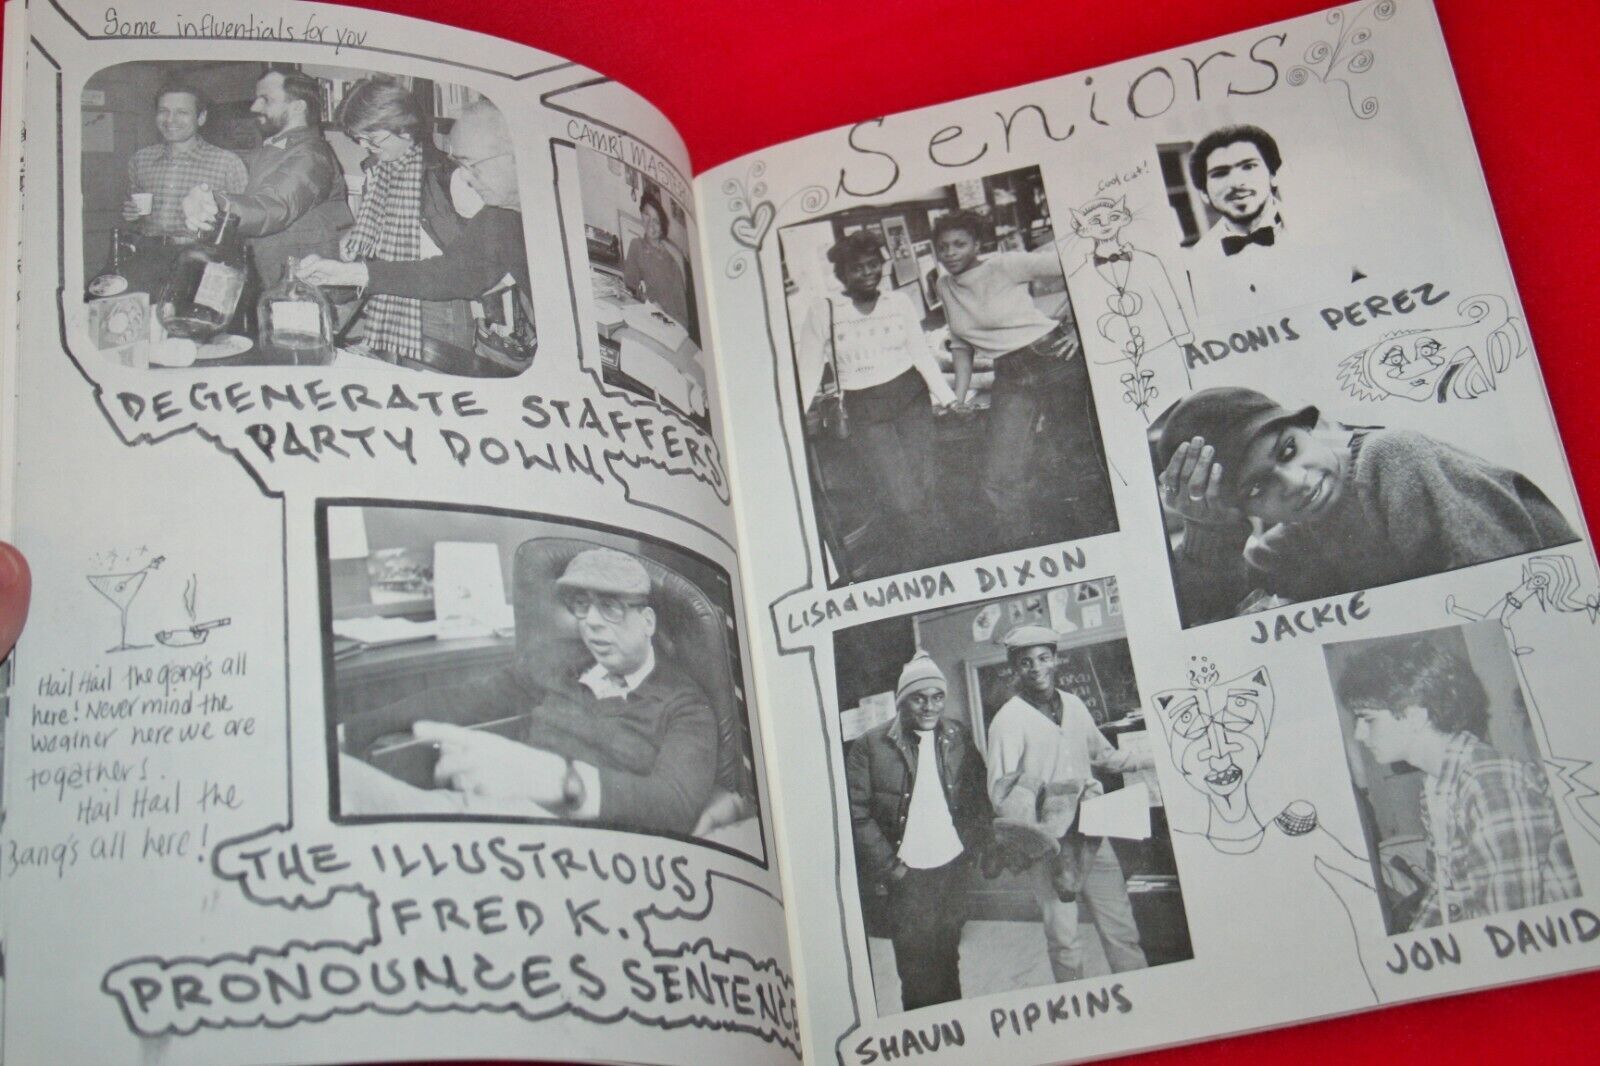 Some influentials for you
CAMRI MASTER
DEGENERATE STAFFERS
PARTY DOWN
Hail Hail the gang's all
here! Never mind the
weather here we are
togethers.
Hail Hail the
Gang's all here!
THE ILLUSTRIOUS
FRED K.
PRONOUNCES SENTENCE
Seniors
Cool cat!
ADONIS PEREZ
LISA & WANDA DIXON
JACKIE
SHAUN PIPKINS
JON DAVID